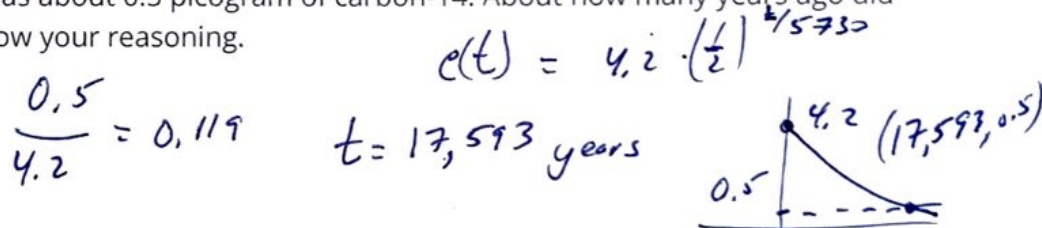 as about 0.5 picogram of carbon-14. About how many years ago did
ow your reasoning.
c(t) = 4.2 · (1/2)^t/5730
0.5/4.2 = 0.119
t = 17,593 years
4.2 (17,593, 0.5)
0.5